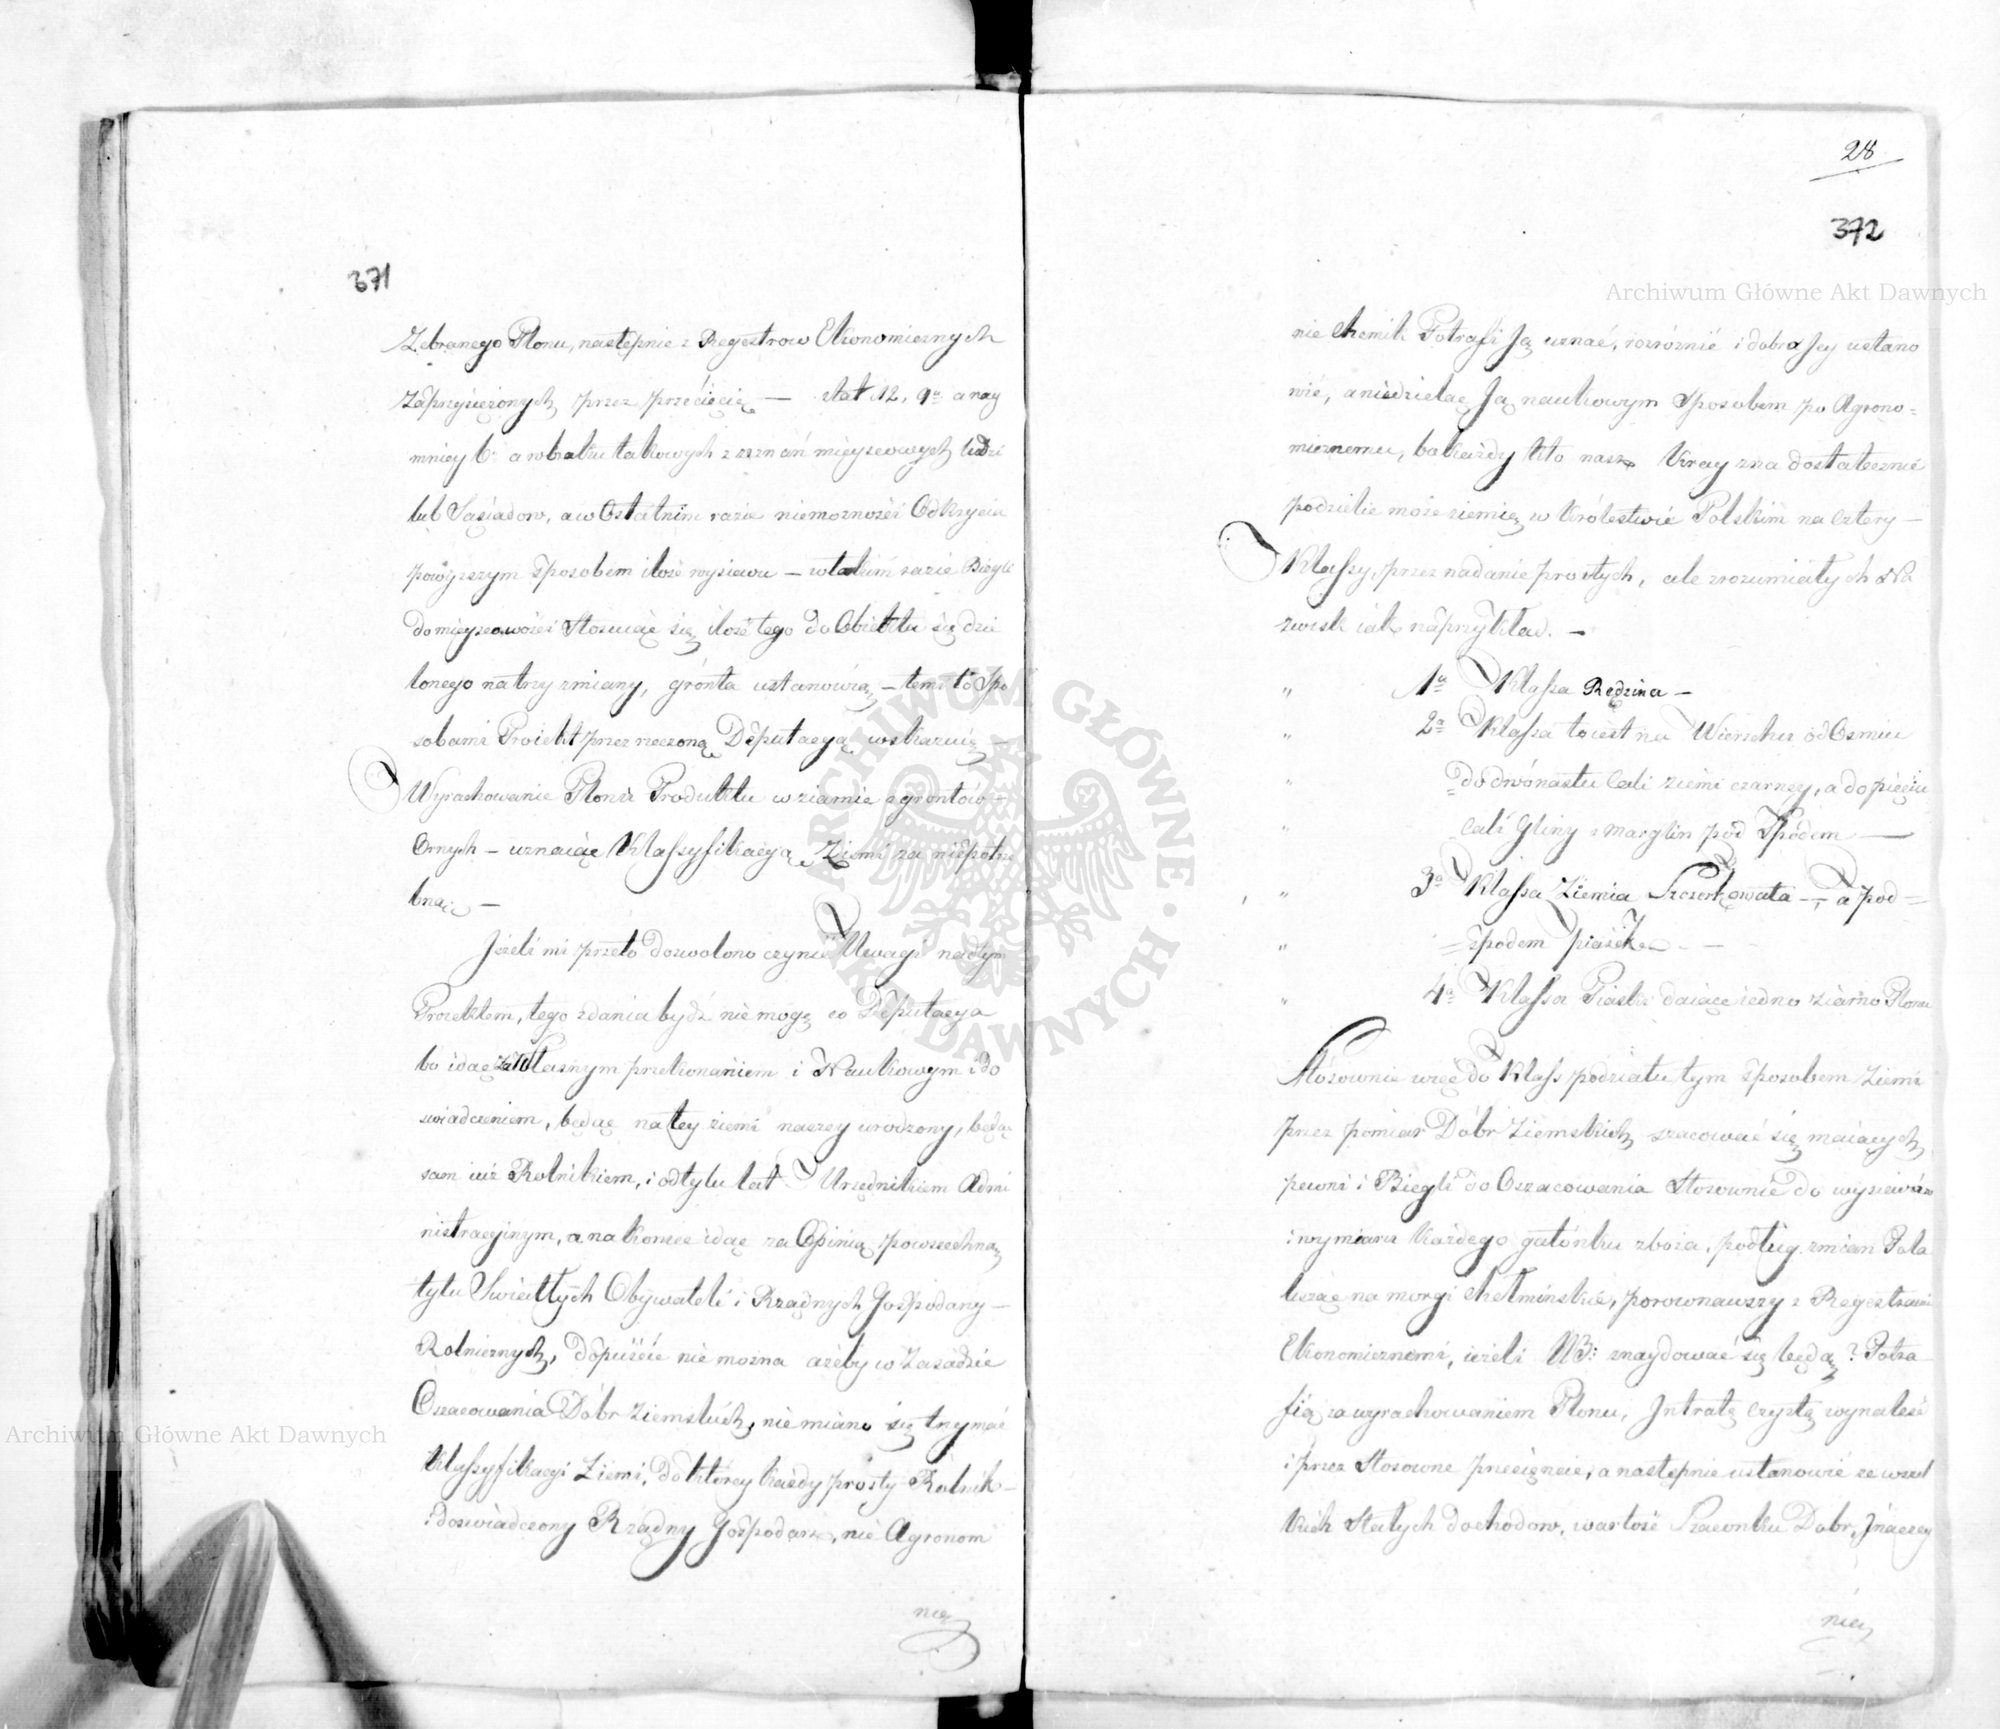 371
Zebranego Plonu, następnie z Regestrow Ekonomicznych
Zaprzysiężonych przez przecięcię — z lat 12, 9ᵘ a nay
mniey 6ᵘ a w braku takowych z zeznań mieyscowych ludzi
lub Sąsiadow, a w Ostatnim razie niemożności Odkrycia
powyższym sposobem ilość wysiewu — w takim razie Biegli
do mieyscowości Stosuiąc się, ilość tego do Obiektu się dzie
lonego na trzy zmiany, grónta ustanowią, — temi to Spo
sobami Proiekt przez rzeczoną Deputacyą wskazuię —
Wyrachowanie Plonu Produktu w ziarnie z grontów —
Ornych — uznaiąc Klassyfikacyą Ziemi za niepotrze
bną —
Jeżeli mi przeto dozwolono czynić Uwagi nad tym
Proiektem, tego zdania bydź nie mogę co Deputacya
bo idąc za Własnym przekonaniem i Naukowym i do
swiadczeniem, będąc na tey ziemi naszey urodzony, będąc
sam iuż Rolnikiem, i od tylu lat Urzędnikiem Admi
nistracyinym, a na koniec idąc za Opinią powszechną
tylu Swiatłych Obywateli i Rządnych Gospodarzy —
Rolniczych, dopuścić nie można ażeby w Zasadzie
Oszacowania Dóbr Ziemskich, nie miano się trzymać
Klassyfikacyi Ziemi, do którey każdy prosty Rolnik —
i doswiadczony Rządny Gospodarz, nie Agronom
nie
28
372
nie Chemik Potrafi Ją uznać, rozróżnić i dobra Jey ustano
wić, a niedzieląc Ją naukowym Sposobem po Agrono=
micznemu, bo każdy kto nasz Kray zna dostatecznie
podzielić może ziemię w Królestwie Polskim na Cztery —
Klassy, przez nadanie prostych, ale zrozumiałych Na
zwisk iak naprzykład. —
" 1ᵃ Klassa Rędzina —
" 2ᵃ Klassa to iest na Wierzchu od Osmiu
" =do dwónastu Cali ziemi czarney, a do pięciu
" Cali Gliny z marglin pod Spodem —
" 3ᵃ Klassa Ziemia Szczerkowata —, a pod=
" =spodem piasek —
" 4ᵃ Klassa Piaski daiące iedno ziarno Plonu
Stósownie więc do Klass podziału tym sposobem Ziemi
przez pomiar Dóbr Ziemskich szacować się maiących
pewni i Biegli do Oszacowania Stosownie do wysiewów
i wymiaru każdego gatónku zboża, podług zmian Pola
licząc na morgi Chełmińskie, porownawszy z Regestrami
Ekonomicznemi, ieżeli NB: znaydować się będą? Potra
fią za wyrachowaniem Plonu, Jntratę Czystą wynaleść
i przez Stosowne przecięncie, a następnie ustanowić ze wszel
kich Stałych dochodow, wartość Szacunku Dobr, Jnaczey
niey